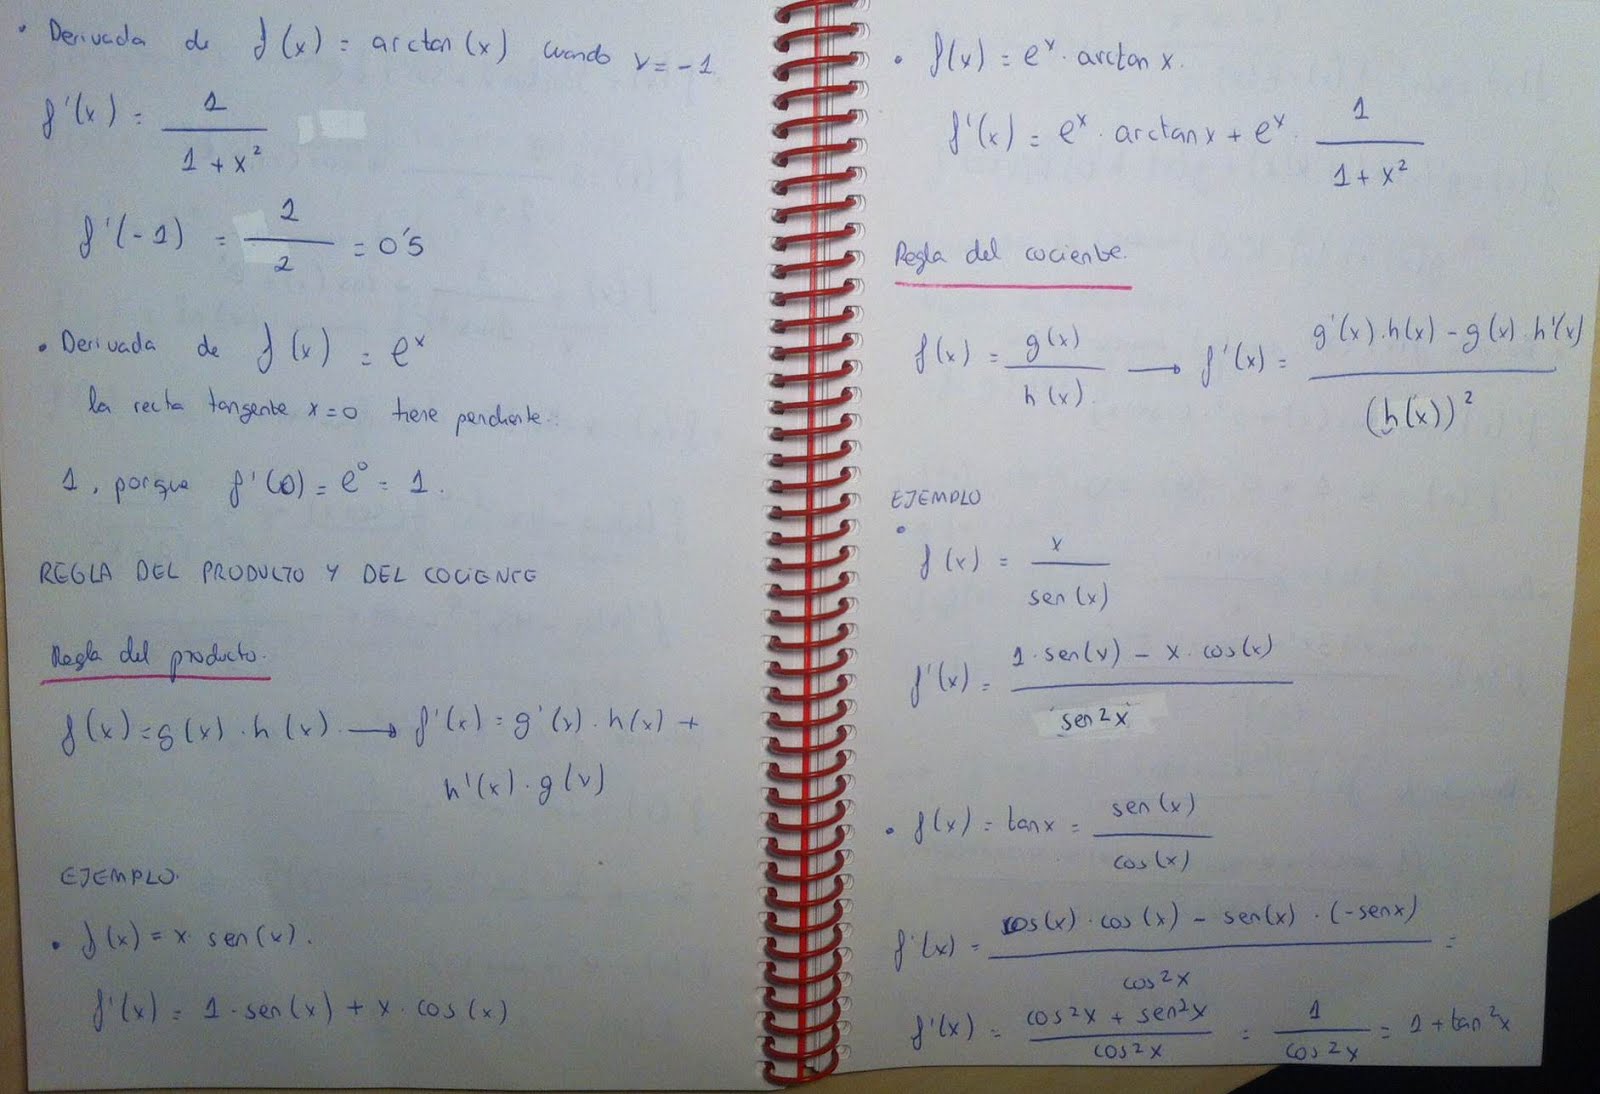 • Derivada de f(x) = arctan(x) cuando x = -1
f'(x) = 1 / (1 + x²)
f'(-1) = 1 / 2 = 0'5
• Derivada de f(x) = eˣ
la recta tangente x=0 tiene pendiente:
1, porque f'(0) = e⁰ = 1.
REGLA DEL PRODUCTO Y DEL COCIENTE
Regla del producto.
f(x) = g(x) · h(x) ⟶ f'(x) = g'(x) · h(x) +
h'(x) · g(x)
EJEMPLO.
• f(x) = x · sen(x).
f'(x) = 1 · sen(x) + x · cos(x)
• f(x) = eˣ · arctan x.
f'(x) = eˣ · arctan x + eˣ · 1 / (1 + x²)
Regla del cociente.
f(x) = g(x) / h(x) ⟶ f'(x) = (g'(x) · h(x) - g(x) · h'(x)) / (h(x))²
EJEMPLO
• f(x) = x / sen(x)
f'(x) = (1 · sen(x) - x · cos(x)) / sen²x
• f(x) = tan x = sen(x) / cos(x)
f'(x) = (cos(x) · cos(x) - sen(x) · (-sen x)) / cos²x =
f'(x) = (cos²x + sen²x) / cos²x = 1 / cos²x = 1 + tan²x